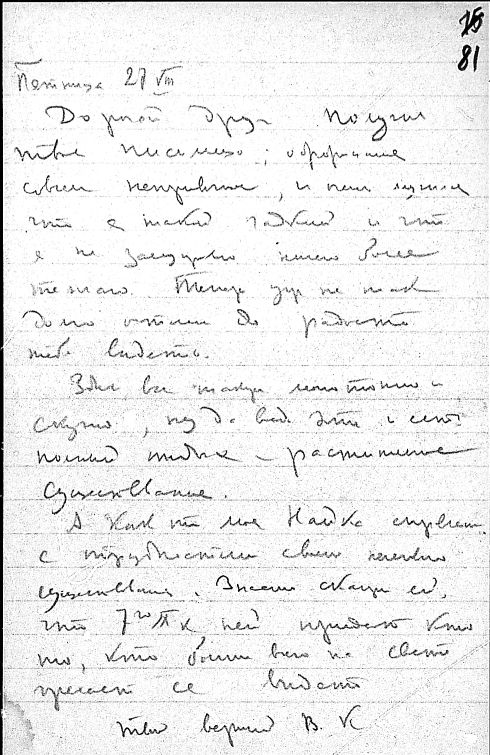 75
81
Пятница 27 VIII
Дорогой друг получил
твое письмецо; обращение
совсем неправильное, и
что я такой гадкий и что
я не заслужил ничего более
теплого. Теперь уж не так
долго осталось до радости
тебя видеть.
Здесь все также монотонно и
скучно, ну да ведь это и есть
полный отдых – растительное
существование.
А как то моя Наика
с трудностями своего
существования. Знаешь скажи ей,
что 7го IX к ней придет кто
то, кто больше всего на свете
ее видеть
твой верный В. К